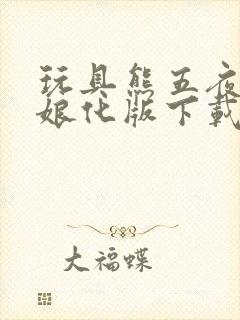 玩具熊五夜
娘化版下载
大福蝶